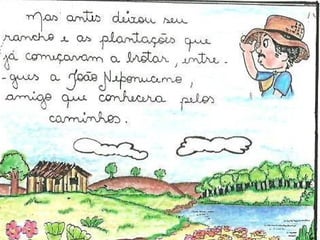 Mas antes deixou seu
rancho e as plantações que
já começavam a brotar, entre-
-gues a João Neponuceno,
amigo que conhecera pelos
caminhos.